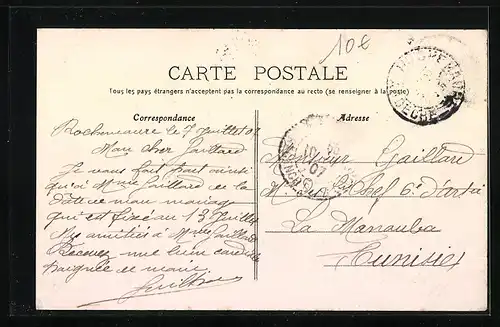 10€
CARTE POSTALE
Tous les pays étrangers n'acceptent pas la correspondance au recto (se renseigner à la poste)
Correspondance
Rochemaure le 7 Juillet 07
Mon cher Gaillard
Je vous fait part ainsi
qu'à Mme Gaillard de la
date de mon mariage
qui est fixé au 13 Juillet
Mes amitiés à Mme Gaillard
Recevez une bien cordiale
poignée de main
Adresse
Monsieur Gaillard
Chef 6e d'art
La Manouba
Tunisie